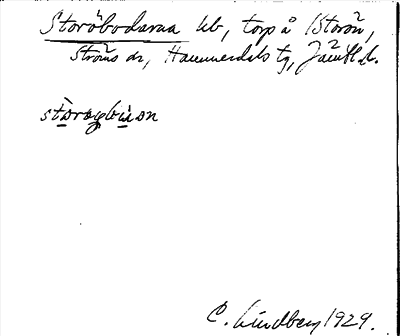 Storöbodarna lb, torp å /Storön,
Ströms sn, Hammerdals tg, Jämtl. l.
storøybu̇an
C. Lindberg 1929.